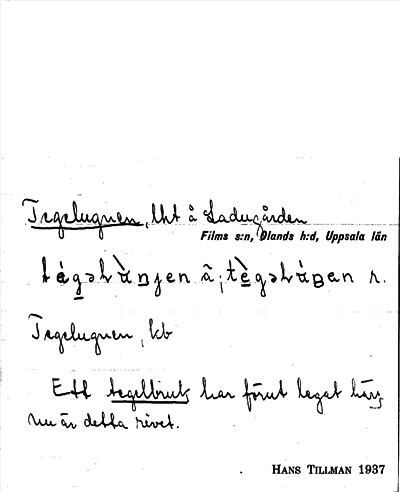 Tegelugnen, lht å Ladugården
Films s:n, Olands h:d, Uppsala län
Tegelugnen, kb
Ett tegelbruk har förut legat här;
nu är detta rivet.
HANS TILLMAN 1937